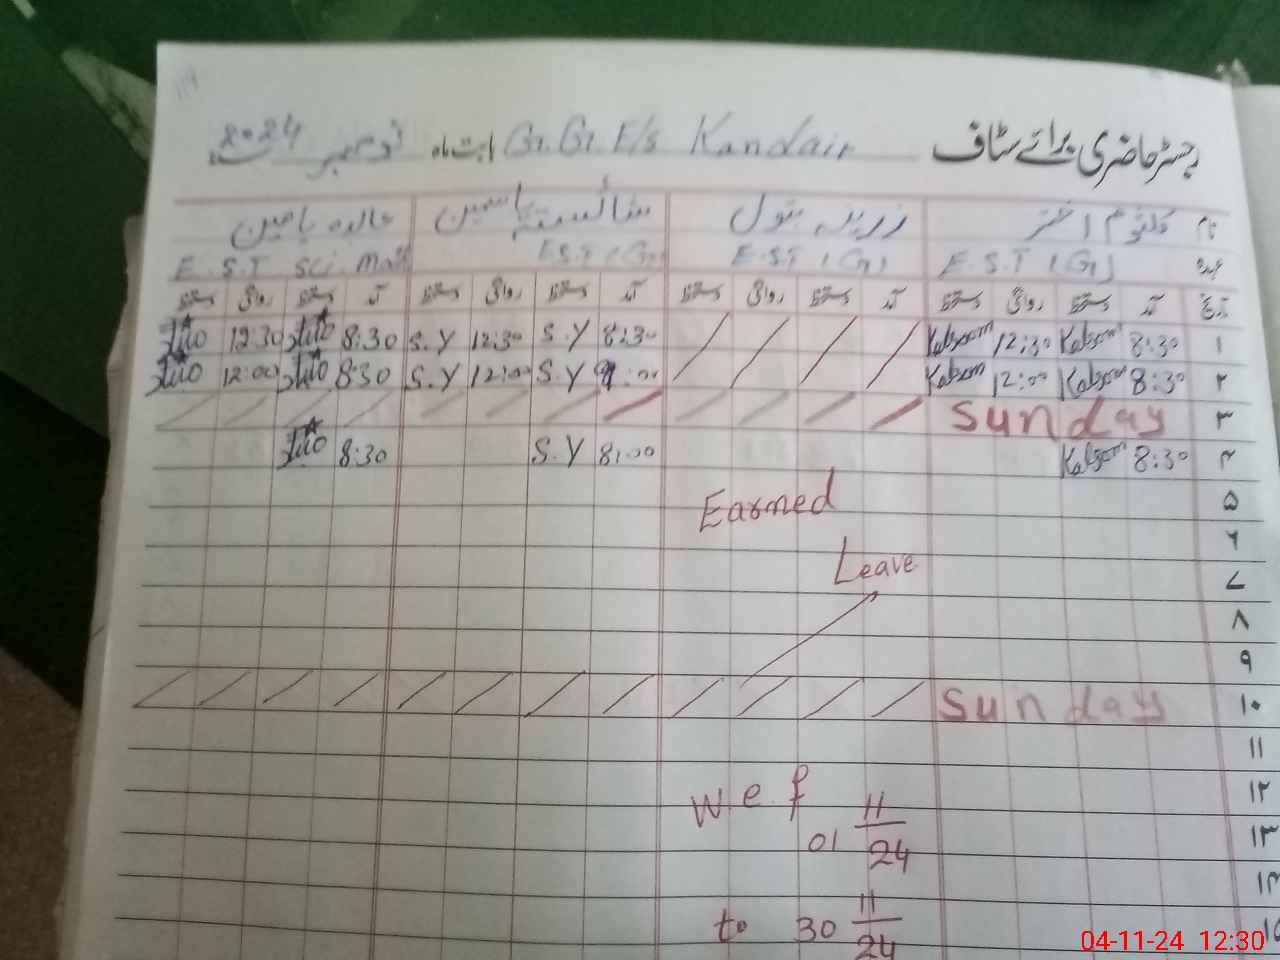 رجسٹر حاضری برائے سٹاف G.G.E/s Kandair بابت ماہ نومبر 2024
نام کلثوم اختر زرینہ بتول شائستہ یاسمین خالدہ یامین
عہدہ E.S.T (G) E.S.T (G) E.S.T (G) E.S.T Sci. Math
تاریخ آمد دستخط روانگی دستخط آمد دستخط روانگی دستخط آمد دستخط روانگی دستخط آمد دستخط روانگی دستخط
۱ 8:30 Kalsoom 12:30 Kalsoom 8:30 S.Y 12:30 S.Y 8:30 12:30
۲ 8:30 Kalsoom 12:00 Kalsoom S.Y 12:00 S.Y 8:30 12:00
۳ Sunday
۴ 8:30 Kalsoom 8:00 S.Y 8:30
۵ Earned
۶
۷ Leave
۸
۹
۱۰ Sunday
۱۱
۱۲ w.e.f
۱۳ 01 11/24
۱۴
۱۵ to 30 11/24
04-11-24 12:30